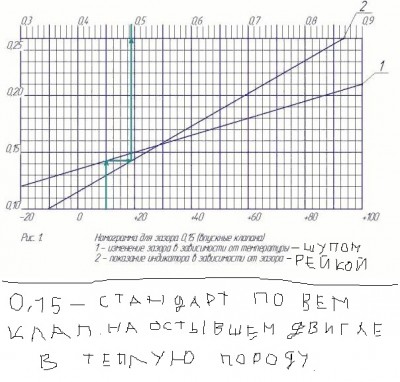 0,3 0,4 0,5 0,6 0,7 0,8 0,9
2
1
0,25
0,20
0,15
0,10
-20 0 +20 +40 +60 +80 +100
Рис. 1. Номограмма для зазора 0,15 (впускные клапана)
1 - изменение зазора в зависимости от температуры - ЩУПОМ
2 - показание индикатора в зависимости от зазора - РЕЙКОЙ
0,15 - СТАНДАРТ ПО ВЕМ
КЛАП. НА ОСТЫВШЕМ ДВИГЛЕ
В ТЕПЛУЮ ПОРОДУ.